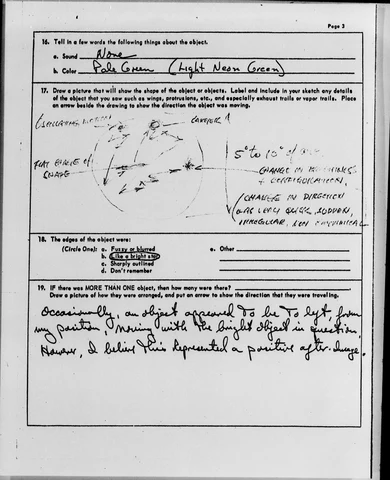 Page 3
16. Tell in a few words the following things about the object.
a. Sound None
b. Color Pale Green (Light Neon Green)
17. Draw a picture that will show the shape of the object or objects. Label and include in your sketch any details
of the object that you saw such as wings, protrusions, etc., and especially exhaust trails or vapor trails. Place
an arrow beside the drawing to show the direction the object was moving.
5° to 10° of
CHANGE IN
CONFIGURATION,
CHANGE IN DIRECTION
WAS VERY QUICK, SUDDEN,
IRREGULAR, NON
18. The edges of the object were:
(Circle One): a. Fuzzy or blurred
b. Like a bright star
c. Sharply outlined
d. Don't remember
e. Other
19. IF there was MORE THAN ONE object, then how many were there?
Draw a picture of how they were arranged, and put an arrow to show the direction that they were traveling.
Occasionally, an object appeared to be to left, from
my position, moving with the bright object in question.
However, I believe this represented a positive after-image.